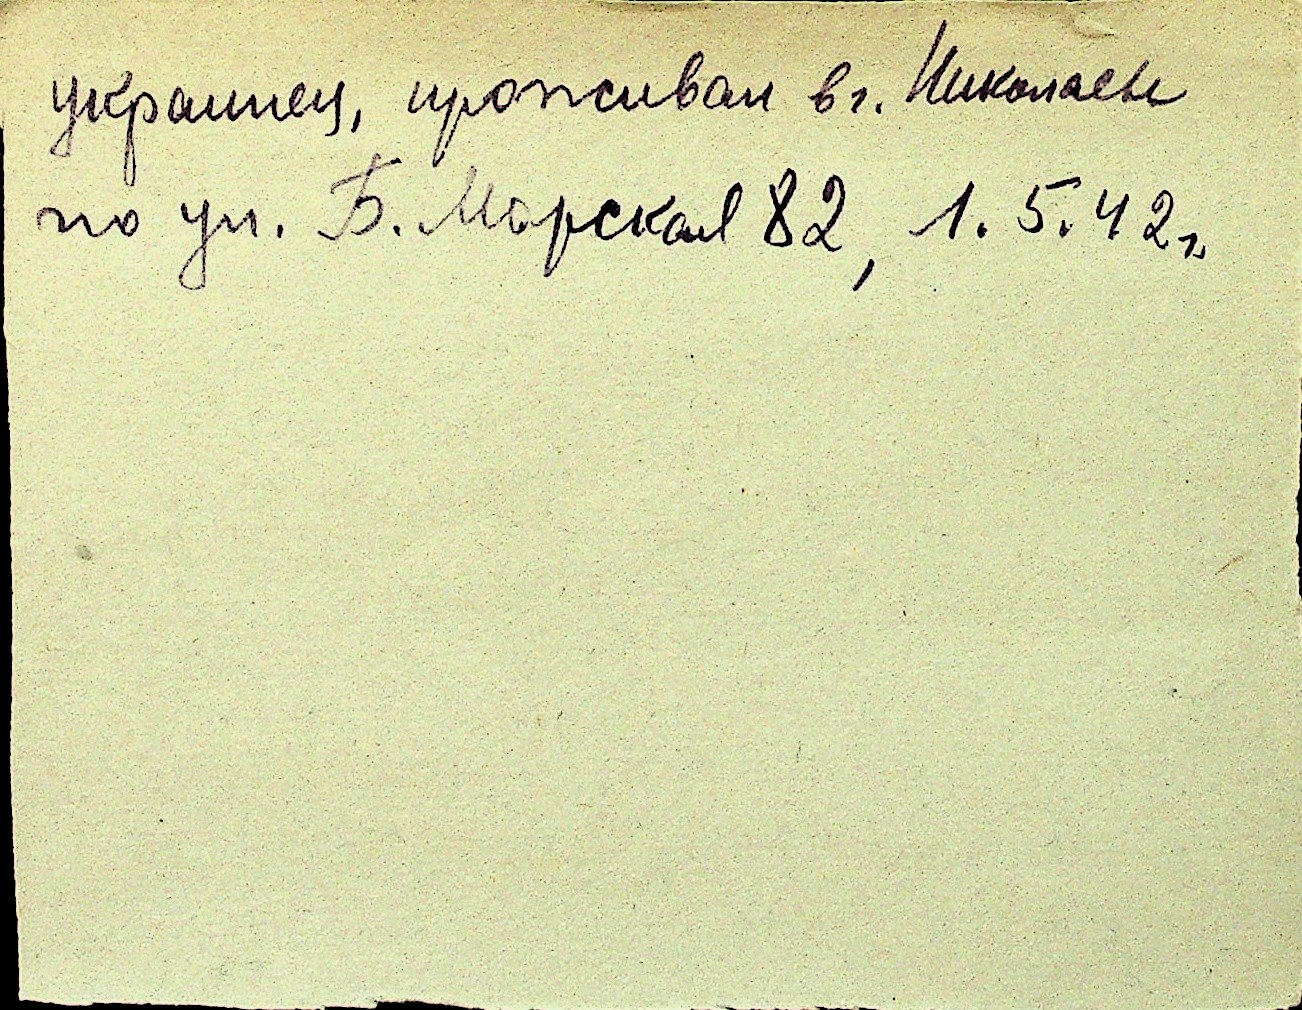 украинец, проживал в г. Николаеве
по ул. Б. Морская 82, 1.5.42 г.